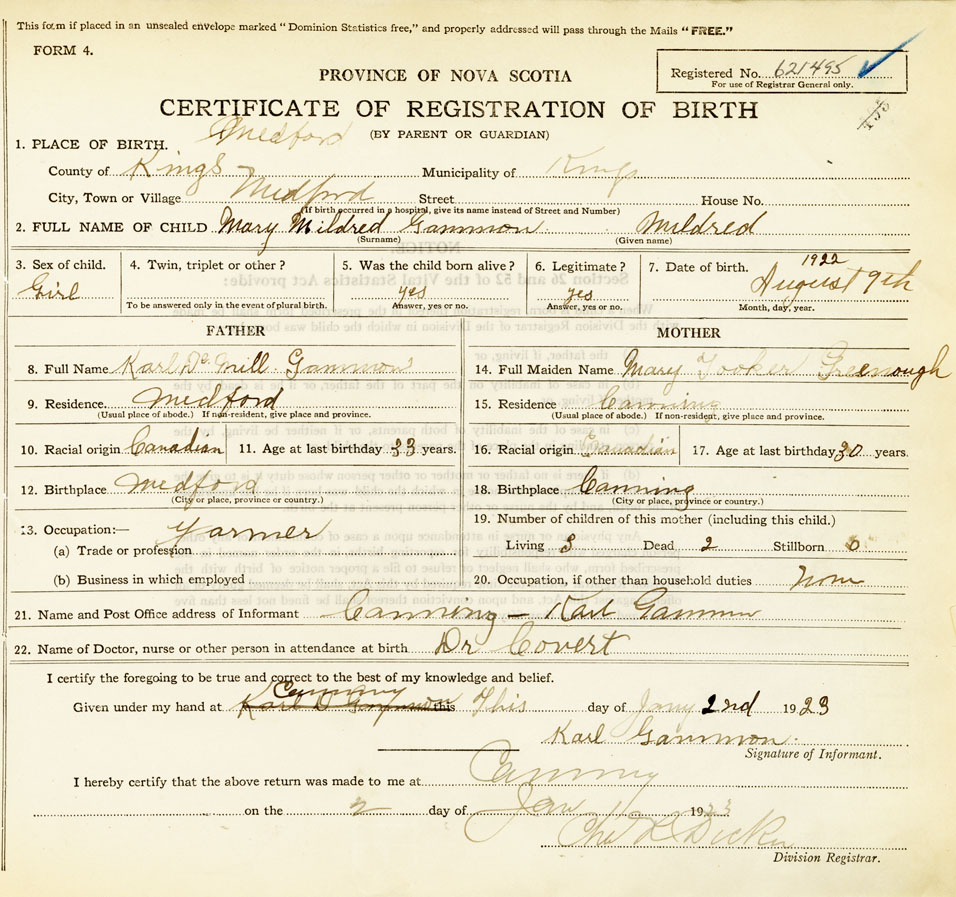 This form if placed in an unsealed envelope marked "Dominion Statistics free," and properly addressed will pass through the Mails "FREE."
FORM 4.
PROVINCE OF NOVA SCOTIA
Registered No. 621495
For use of Registrar General only.
CERTIFICATE OF REGISTRATION OF BIRTH
(BY PARENT OR GUARDIAN)
1. PLACE OF BIRTH. Medford
County of Kings Municipality of Kings
City, Town or Village Medford Street House No.
(If birth occurred in a hospital, give its name instead of Street and Number)
2. FULL NAME OF CHILD Mary Mildred Gammon Mildred
(Surname) (Given name)
3. Sex of child. 4. Twin, triplet or other? 5. Was the child born alive? 6. Legitimate? 7. Date of birth. 1922
Girl yes yes August 9th
To be answered only in the event of plural birth. Answer, yes or no. Answer, yes or no. Month, day, year.
FATHER MOTHER
8. Full Name Karl De Mill Gammon 14. Full Maiden Name Mary Tooker Greenough
9. Residence. Medford 15. Residence Canning
(Usual place of abode.) If non-resident, give place and province. (Usual place of abode.) If non-resident, give place and province.
10. Racial origin Canadian 11. Age at last birthday 33 years. 16. Racial origin Canadian 17. Age at last birthday 30 years.
12. Birthplace Medford 18. Birthplace Canning
(City or place, province or country.) (City or place, province or country.)
13. Occupation:— Farmer 19. Number of children of this mother (including this child.)
(a) Trade or profession Living 3 Dead 2 Stillborn 0
(b) Business in which employed 20. Occupation, if other than household duties None
21. Name and Post Office address of Informant Canning — Karl Gammon
22. Name of Doctor, nurse or other person in attendance at birth Dr Covert
I certify the foregoing to be true and correct to the best of my knowledge and belief.
Canning
Given under my hand at this This day of Jany 2nd 1923
Karl Gammon.
Signature of Informant.
I hereby certify that the above return was made to me at Canning
on the 2 day of Jan 1923
Division Registrar.